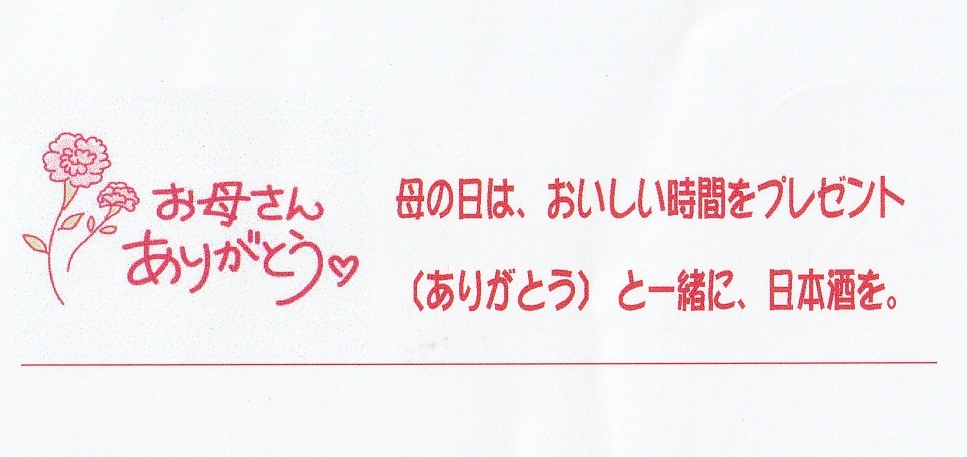 お母さん
ありがとう♡
母の日は、おいしい時間をプレゼント
（ありがとう） と一緒に、日本酒を。